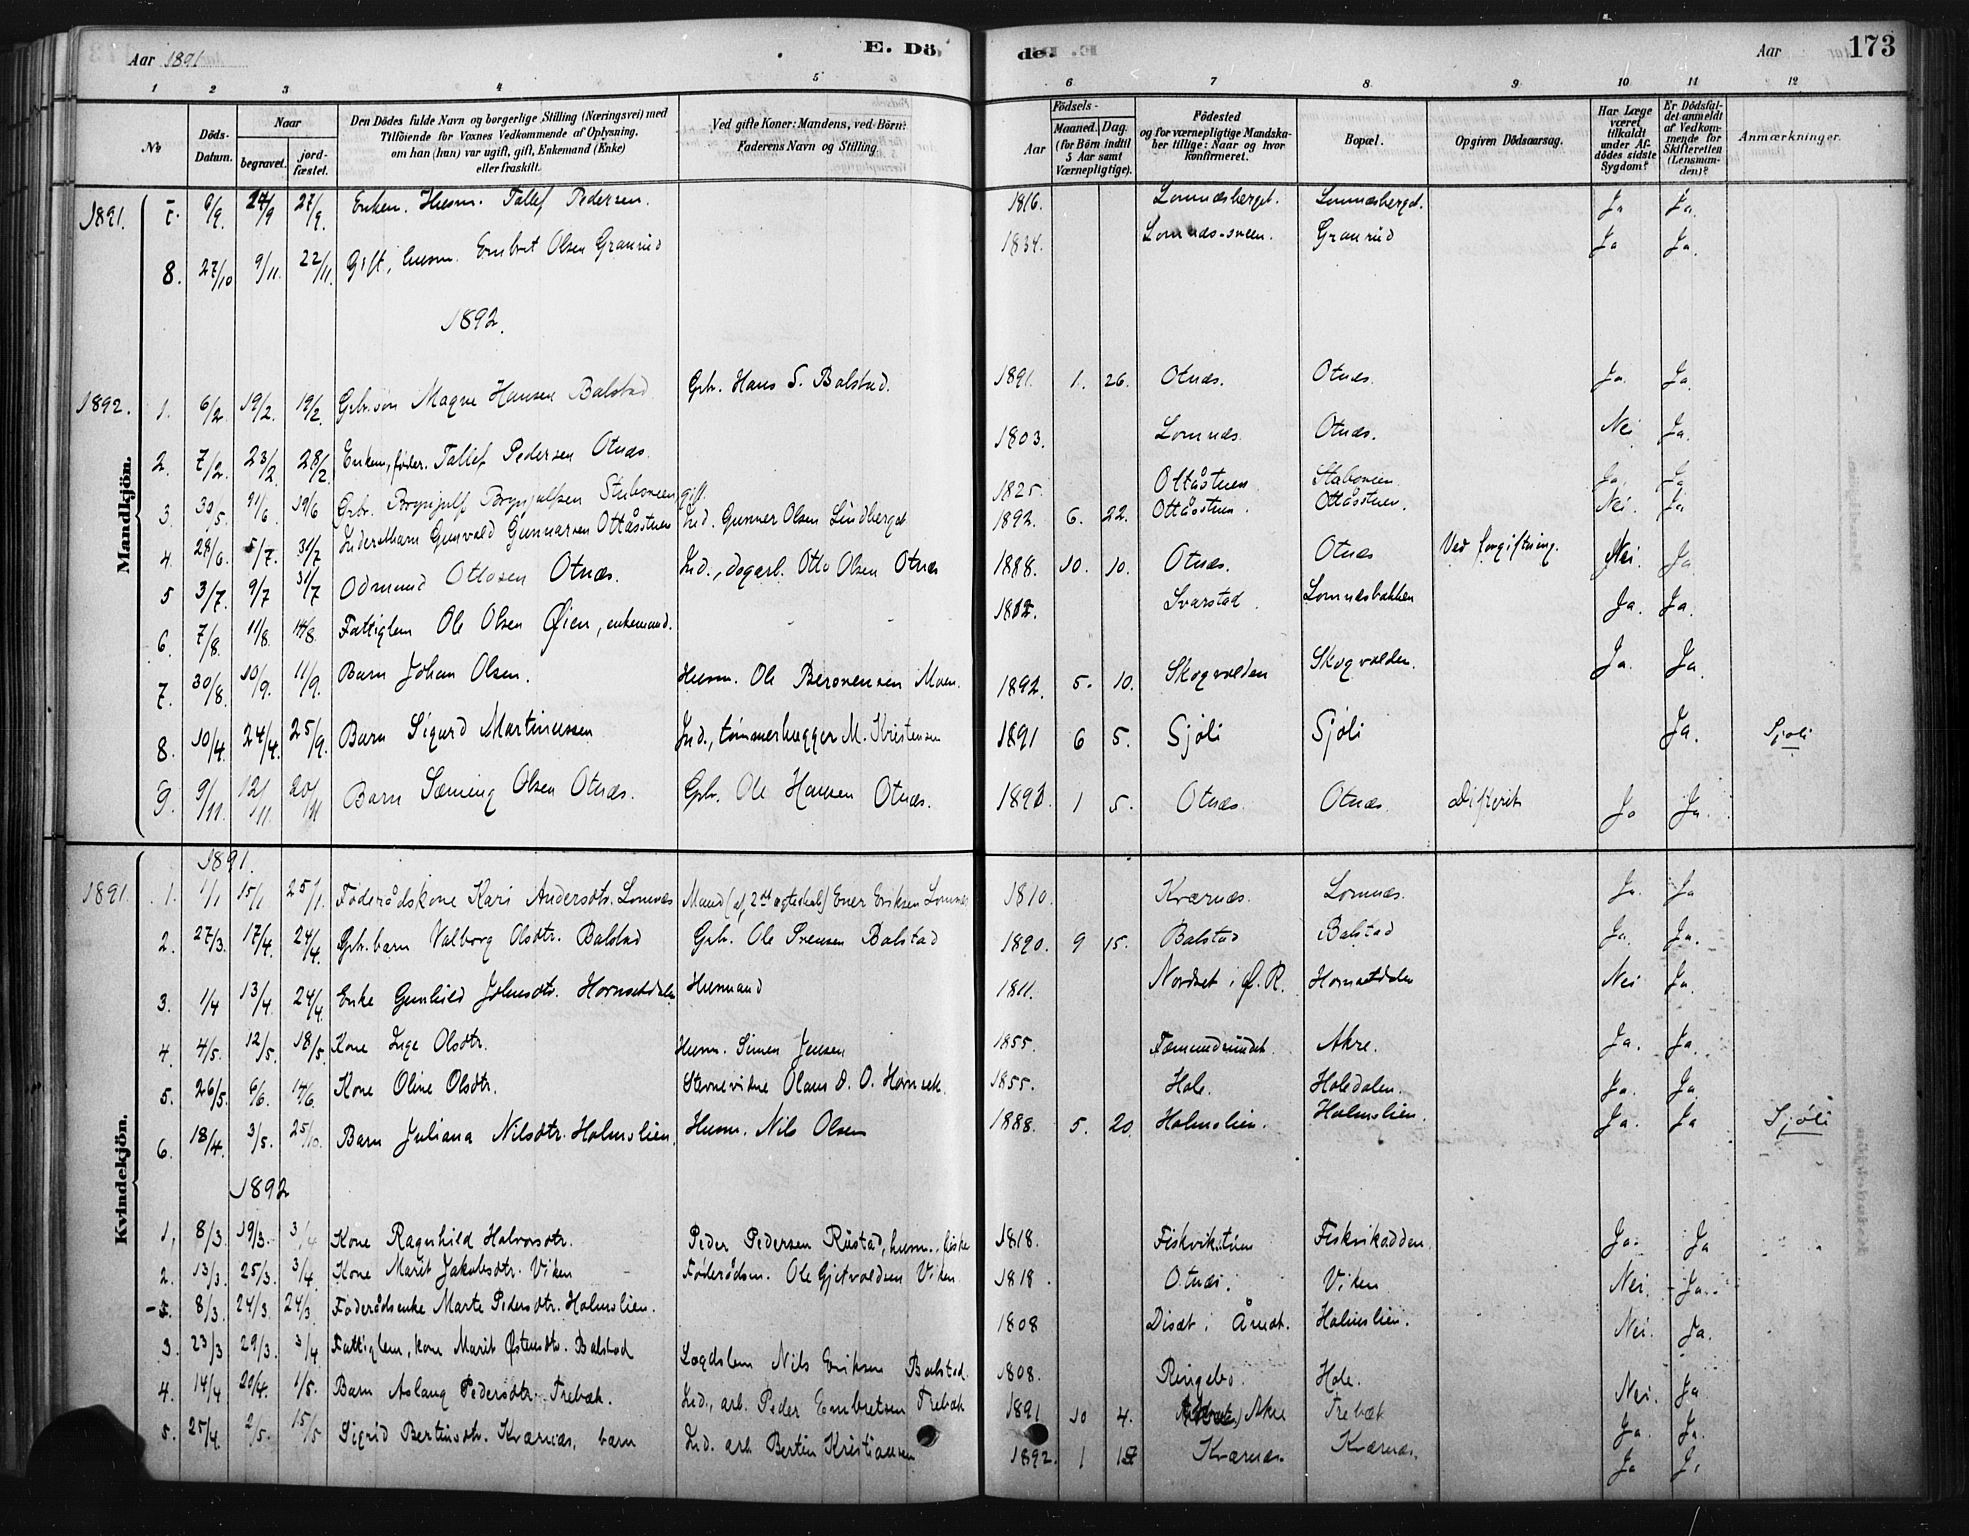 Aar 1891
E. Dö
de.
Aar
173
1 2 3 4 5 6 7 8 9 10 11 12
No
Döds-Datum.
Naar
begravet.
jord-fæstet.
Den Dödes fulde Navn og borgerlige Stilling (Næringsvei) med
Tilföiende for Voxnes Vedkommende af Oplysning,
om han (hun) var ugift, gift, Enkemand (Enke)
eller fraskilt.
Ved gifte Koner: Mandens, ved Börn:
Faderens Navn og Stilling.
Födsels-
Aar
Maaned. Dag.
(for Börn indtil
5 Aar samt
Værnepligtige).
Födested
og for værnepligtige Mandska-
ber tillige: Naar og hvor
konfirmeret.
Bopæl.
Opgiven Dödsaarsag.
Har Læge
været
tilkaldt
under Af-
dödes sidste
Sygdom?
Er Dödsfal-
det anmeldt
af Vedkom-
mende for
Skifteretten
(Lensman-
den)?
Anmærkninger.
Mandkjön.
1891. 9/9. 27/9. Enkem. Husm. Tallef Pedersen. 1816. Lomnæsberget. Lomnæsberget. Ja Ja.
8. 27/10 9/11. 22/11. Gift, husm. Embret Olsen Granrud 1834. Lomnæs-sveen. Granrud Ja Ja.
1892.
1892. 1. 6/2. 19/2. 19/2. Gbr.søn Magne Hansen Balstad Gbr. Hans S. Balstad. 1891. 1. 26. Otnæs. Otnæs. Ja. Ja.
2. 7/2. 23/2. 28/2. Enkem, føder. Tallef Pedersen Otnæs. 1803. Lomnæs. Otnæs. Nei Ja.
3. 30/5. 19/6 Gbr. Brynjulf Brynjulfsen gift. 1825. Ottåstuen Ja. Ja
4. 28/6. 5/7. 31/7 Inderstbarn Gunvald Gunnarsen Ottåstuen Ind. Gunner Olsen Lindberget 1892. 6. 22. Ottåstuen. Ottåstuen. Nei. Ja
5 3/7. 9/7 31/7 Odmund Ottosen Otnæs. Ind., dagarb. Otto Olsen Otnæs 1888. 10. 10. Otnæs. Otnæs Ved forgiftning. Nei. Ja
6. 7/8. 11/8. 14/8. Fattiglem Ole Olsen Øien, enkemand. Svarstad. Lomnæsbakken Ja. Ja.
7. 30/8. 10/9. 11/9. Barn Johan Olsen. Husm. Ole Bersvensen Moen. 1892. 5. 10. Skogvolden Skogvolden. Ja. Ja
8. 10/4. 24/4. 25/9. Barn Sigurd Martinussen Ind., tømmerhugger M. Kristensen 1891 6 5. Sjøli Sjøli Ja. Sjøli
9. 9/11. 12/11. 20/11 Barn Sæming Olsen Otnæs. Gbr. Ole Hansen Otnæs. 1 5. Otnæs. Otnæs Difterit Ja Ja.
Kvindekjön.
1891.
1891. 1. 1/1 15/1 25/1. Føderådskone Kari Andersdtr. Lomnæs Mand (af 2det ægteskab) Ener Eriksen Lomnæs 1810. Kværnæs. Lomnæs. Ja. Ja
2. 27/3. 17/4. 24/4. Gbr.barn Valborg Olsdtr. Balstad Gbr. Ole Svensen Balstad 1890. 9 15. Balstad Balstad Ja. Ja.
3. 1/4 13/4 24/4. Enke Gunhild Johnsdtr. Hornsetdalen Husmand 1811. Nordset i Ø. R. Hornsetdalen Nei Ja.
4. 4/5. 12/5. 18/5 Kone Inge Olsdtr. Husm. Simen Jensen 1855. Fæmundsundet. Akre. Ja. Ja.
5. 26/5. 6/6. 14/6. Kone Oline Olsdtr. Olaus O. O. Hornsæt. 1855. Hole. Holedalen. Ja. Ja
6. 18/4. 3/5. 25/10. Barn Juliana Nilsdtr. Holmslien. Husm. Nils Olsen 1888. 5. 20. Holmslien. Holmslien. Ja. Ja Sjøli
1892
1, 8/3. 19/3. 3/4 Kone Ragnhild Halvorsdtr. Peder Pedersen Rustad, husm., fisker 1818. Fiskviktun Fiskvikodden. Ja. Ja
2. 13/3. 25/3. 3/4. Kone Marit Jakobsdtr. Viken Føderådsm. Ole Gjetvoldsen Viken 1818. Otnæs. Viken Nei. Ja.
8/3. 24/3 24/3. Føderådsenke Marte Pedersdtr. Holmslien. 1808 Disæt i Åmot. Holmslien. Nei. Ja.
3. 23/3 29/3. 3/4. Fattiglem, kone Marit Østensdtr. Balstad Lægdslem Nils Eriksen Balstad. 1808. Ringebo. Hole. Nei. Ja
4. 14/4 20/4. 1/5. Barn Aslaug Pedersdtr. Trebæk. Ind., arb. Peder Embretsen Trebæk 1891 10 4. Akre Trebæk Ja. Ja.
5. 25/4. 2/5. 15/5 Sigrid Bertinsdtr. Kværnæs, barn Ind. arb. Bertin Kristiansen 1892. 1 Kværnæs. Kværnæs. Ja